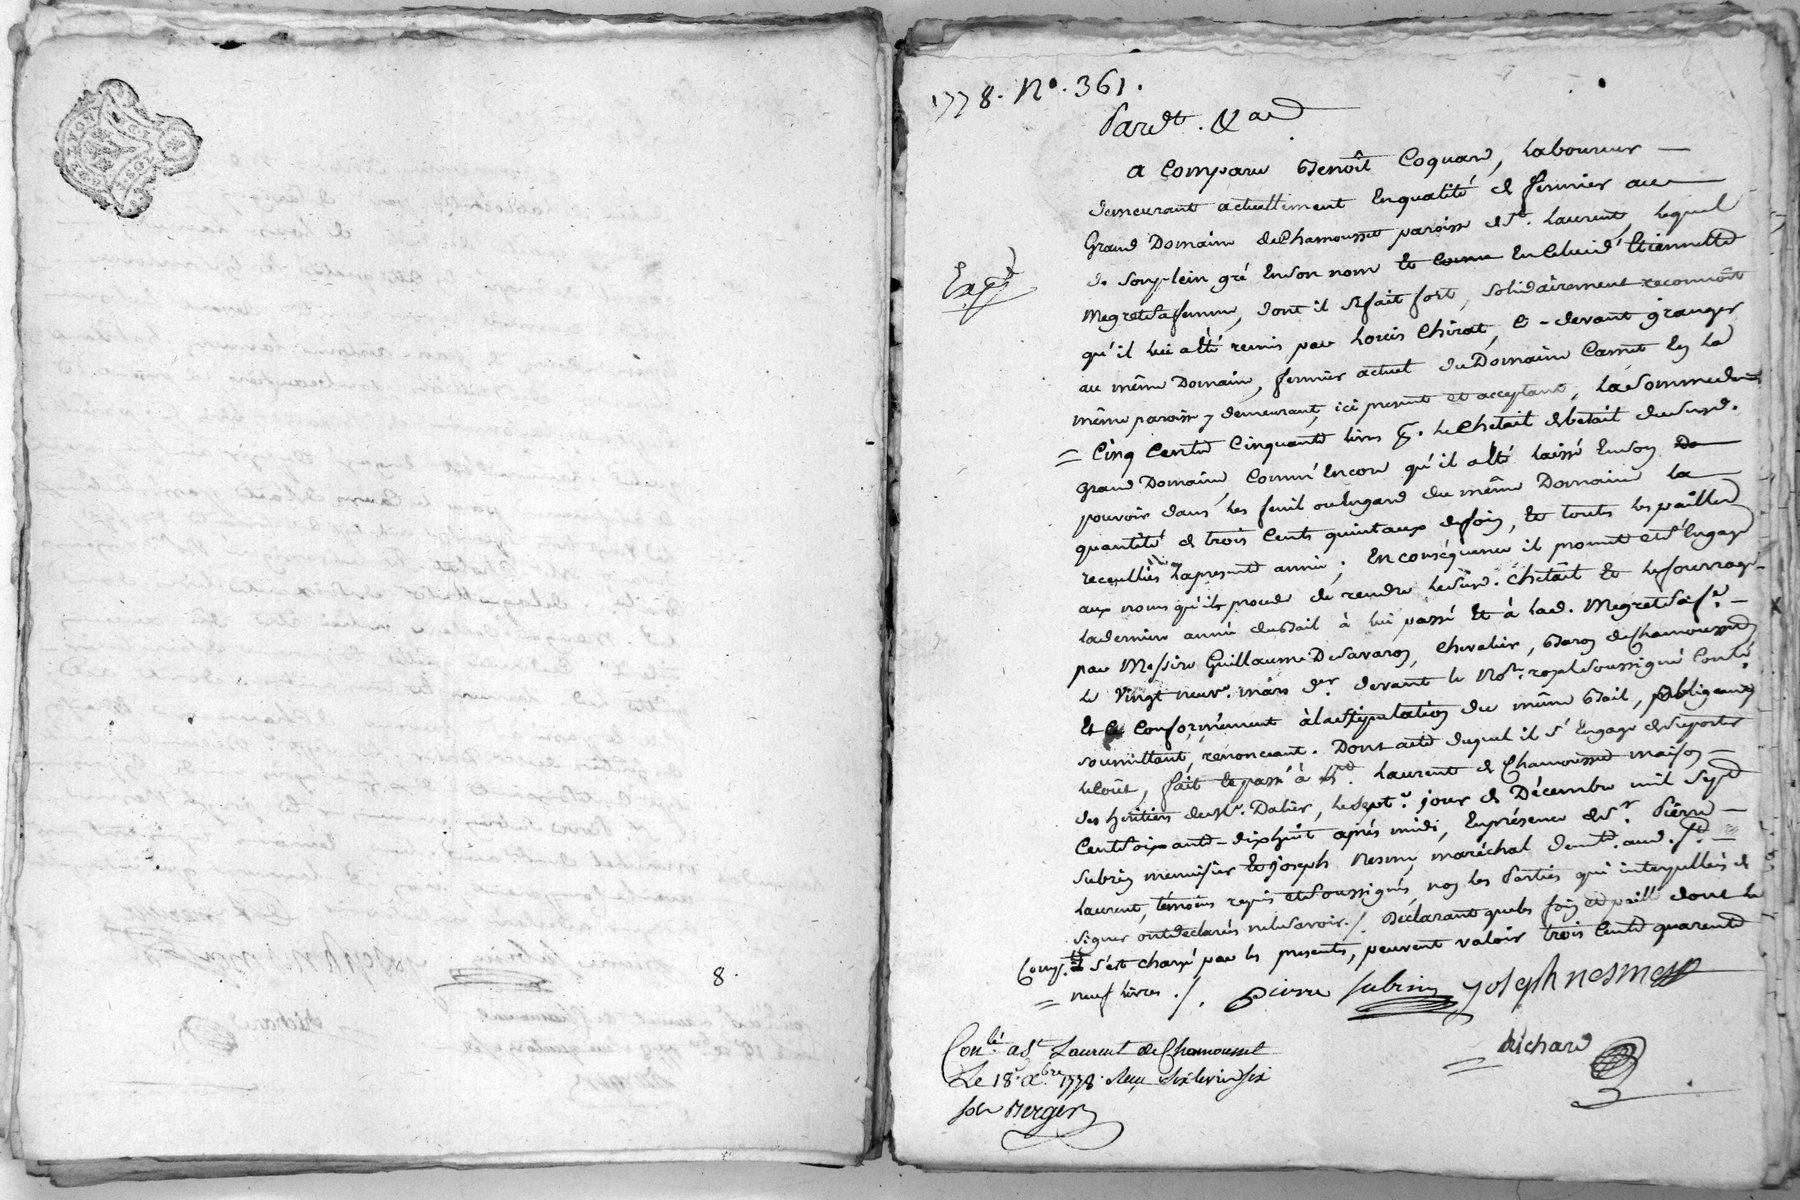 8.
1778. No. 361.
Pardt. &a
Expé
a comparu Benoît Coquard, Laboureur
demeurant actuellement En qualité de fermier au
Grand Domaine de Chamousset paroisse de St. Laurent, Lequel
de son plein gré En son nom et comme En Celui d'Etiennette
Megret sa femme, dont il se fait fort, solidairement reconnoit
qu'il lui a Eté remis par Louis Chirat, ci-devant granger
au même Domaine, fermier actuel du Domaine Carret En la
même paroisse y demeurant, ici present et acceptant, La somme de
Cinq Cents Cinquante livres pr. le Chetail de betail dud. susd.
Grand Domaine, Comm'Encore qu'il a Eté laissé En son
pouvoir dans les fenil ou hangard du même Domaine la
quantité de trois Cents quintaux de foin, et toutes les pailles
recueillies la presente année; En conséquence il promet et s'Engage
aux noms qu'il procede de rendre led. susd. Chetail Et le fourrage
la derniere année du Bail à lui passé Et à lad. Megret sa fe.
par Messire Guillaume De Savaron, Chevalier, Baron de Chamousset
le Vingt neuf. mars der. devant le Nore. royal soussigné Conlé.
Et ce Conformément à la stipulation du même Bail, obligeant
soumettant, renonceant. Dont acte duquel il s'Engage de suporter
le Coût, fait et passé à St. Laurent de Chamousset maison
des héritiers de Mr. Dalier, le sept. jour de Décembre mil sept
Cent soixante-dix huit après midi, En présence de sr. Pierre
Subrin menuisier et Joseph Nesme, maréchal demts. aud. St.
Laurent, témoins requis et soussignés, non les Parties qui interpellées de
signer ont déclaré ne le savoir./. Déclarant que les foin et paille dont le
Comp. s'est chargé par les presentes, peuvent valoir trois Cents quarante
neuf livres ./.
pierre Subrin Joseph nesme
Richard
Conlé. a St Laurent de Chamousset
Le 18e. xbre 1778. Reçu six livres six
sols Berger